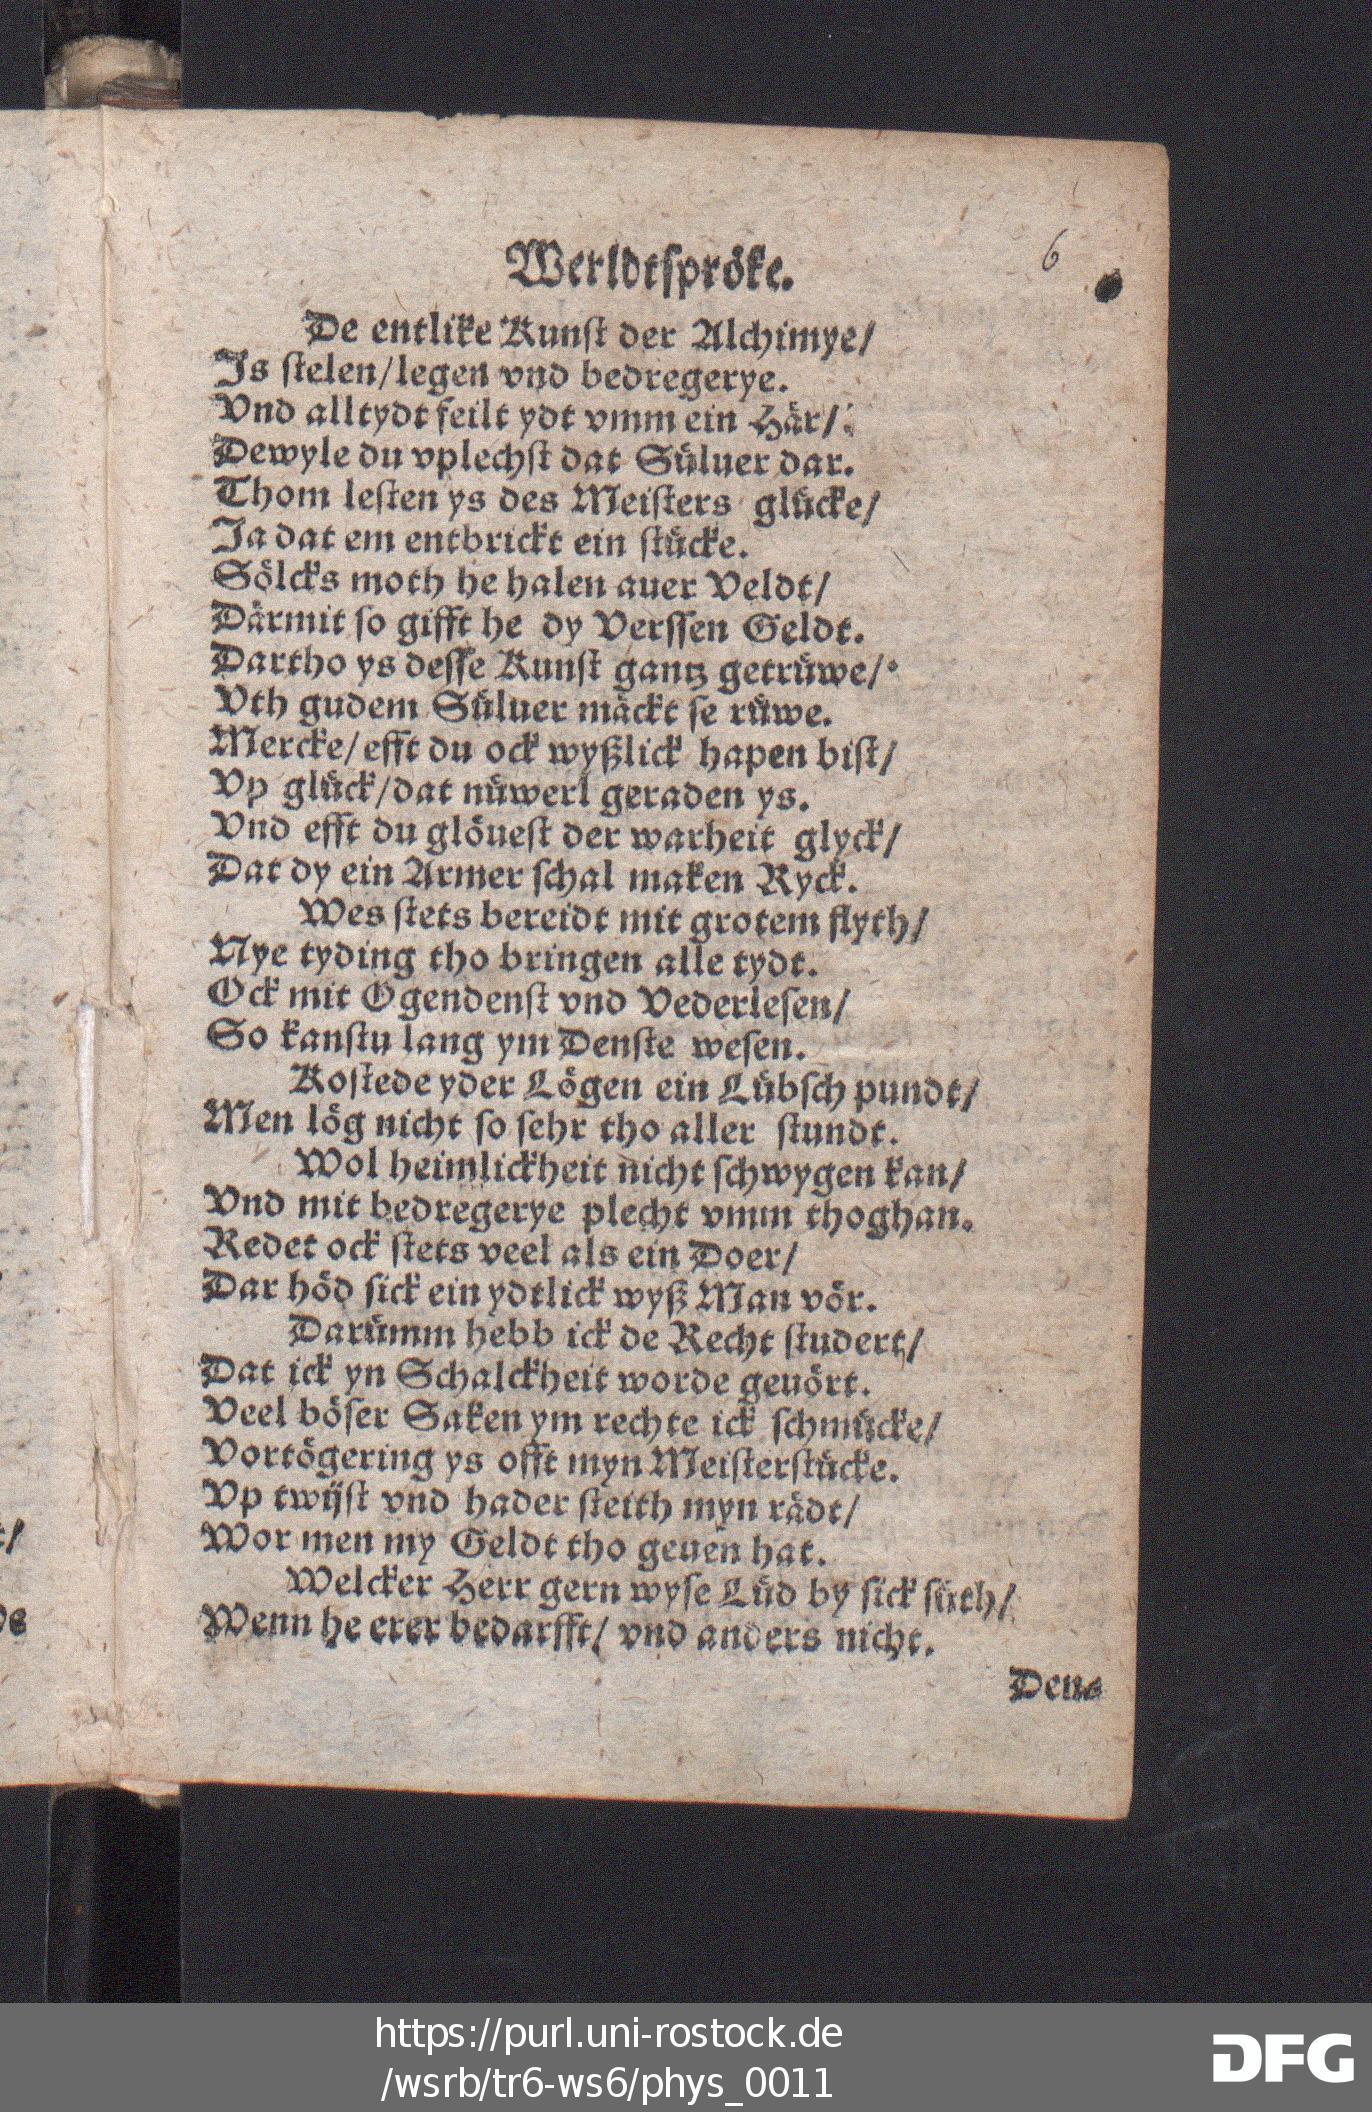 Werldtspröke.
6
De entlike Kunst der Alchimye/
Js stelen/legen vnd bedregerye.
Vnd alltydt feilt ydt vmm ein Här/
Dewyle du vplechst dat Sülver dar.
Thom lesten ys des Meisters glücke/
Ja dat em entbrickt ein stücke.
Sölcks moth he halen auer Veldt/
Därmit so gifft he dy Verssen Geldt.
Dartho ys desse Kunst gantz getrüwe/
Vth gudem Süluer mäckt se rüwe.
Mercke/efft du ock wyßlick hapen bist/
Vp glück/dat nüwerl geraden ys.
Vnd efft du glöuest der warheit glyck/
Dat dy ein Armer schal maken Ryck.
Wes stets bereidt mit grotem flyth/
Nye tyding tho bringen alle tydt.
Ock mit Ogendenst vnd Vederlesen/
So kanstu lang ym Denste wesen.
Kostede yder Lögen ein Lübsch pundt/
Men lög nicht so sehr tho aller stundt.
Wol heimlickheit nicht schwygen kan/
Vnd mit bedregerye plecht vmm thoghan.
Redet ock stets veel als ein Doer/
Dar höd sick ein ydtlick wyß Man vör.
Darümm hebb ick de Recht studert/
Dat ick yn Schalckheit worde geuört.
Veel böser Saken ym rechte ick schmücke/
Vortögering ys offt myn Meisterstücke.
Vp twijst vnd hader steith myn rädt/
Wor men my Geldt tho geuen hat.
Welcker Herr gern wyse Lüd by sick süth/
Wenn he erer bedarfft/ vnd anders nicht.
Dene
https://purl.uni-rostock.de
/wsrb/tr6-ws6/phys_0011
DFG